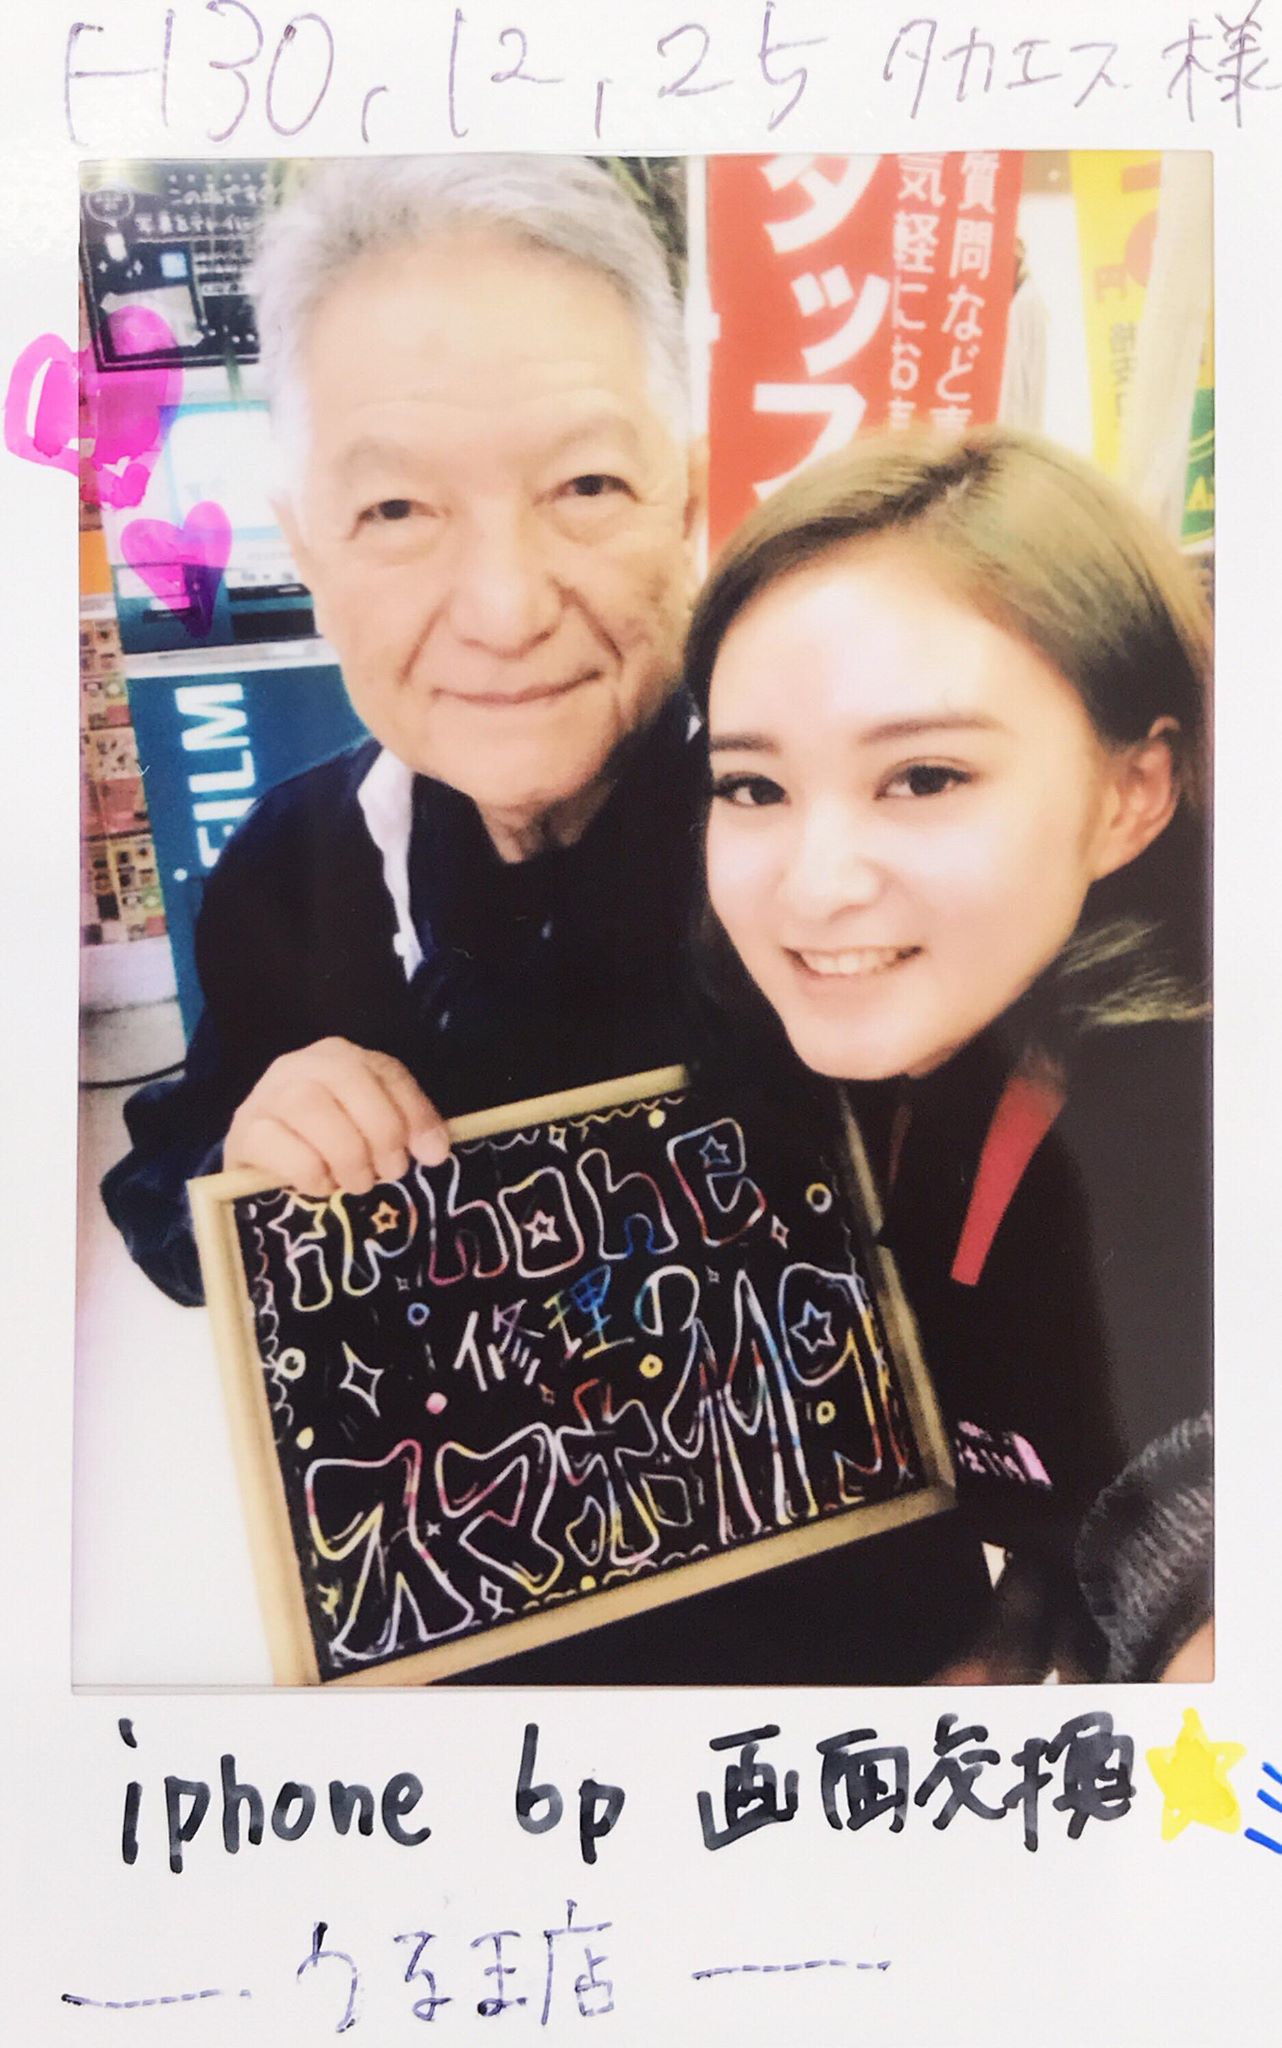 H30,12,25 タカエス様
この品ですぐ
タッフ
質問など
気軽にお
円
FILM
iphone
修理の
スマホ119
iphone 6p 画面交換
うるま店